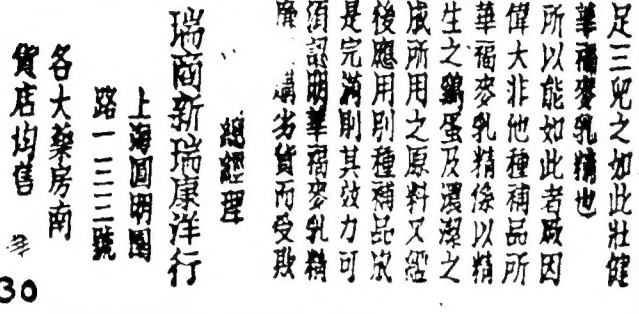 足三兒之如此壯健
華福麥乳精也
所以能如此者厥因
偉大非他種補品所
華福麥乳精係以精
生之鷄蛋及濃潔之
成所用之原料又經
後應用別種補品
是完滿則其效力可
須認明華福麥乳精
購劣貨而受欺
總經理
瑞商新瑞康洋行
上海圓明園
路一三三號
各大藥房南
貨店均售
30